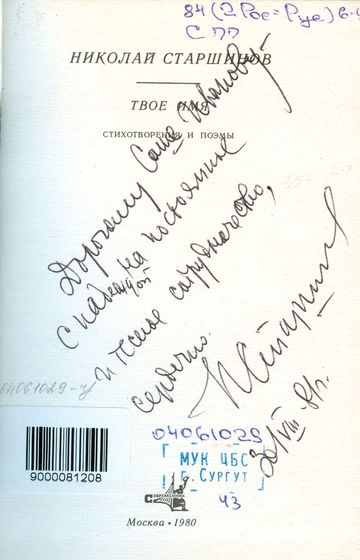 84(2Рос=Рус)6-
С 77
НИКОЛАЙ СТАРШИНОВ
ТВОЕ ИМЯ
СТИХОТВОРЕНИЯ И ПОЭМЫ
Дорогому Саше Иванову -
с надеждой на постоянное
и тесное сотрудничество,
сердечно.
Н Старшинов
30/VIII-81г.
04061029-
9000081208
04061029
МУК ЦБС
г. Сургут
ч3
СОВРЕМЕННИК
Москва • 1980